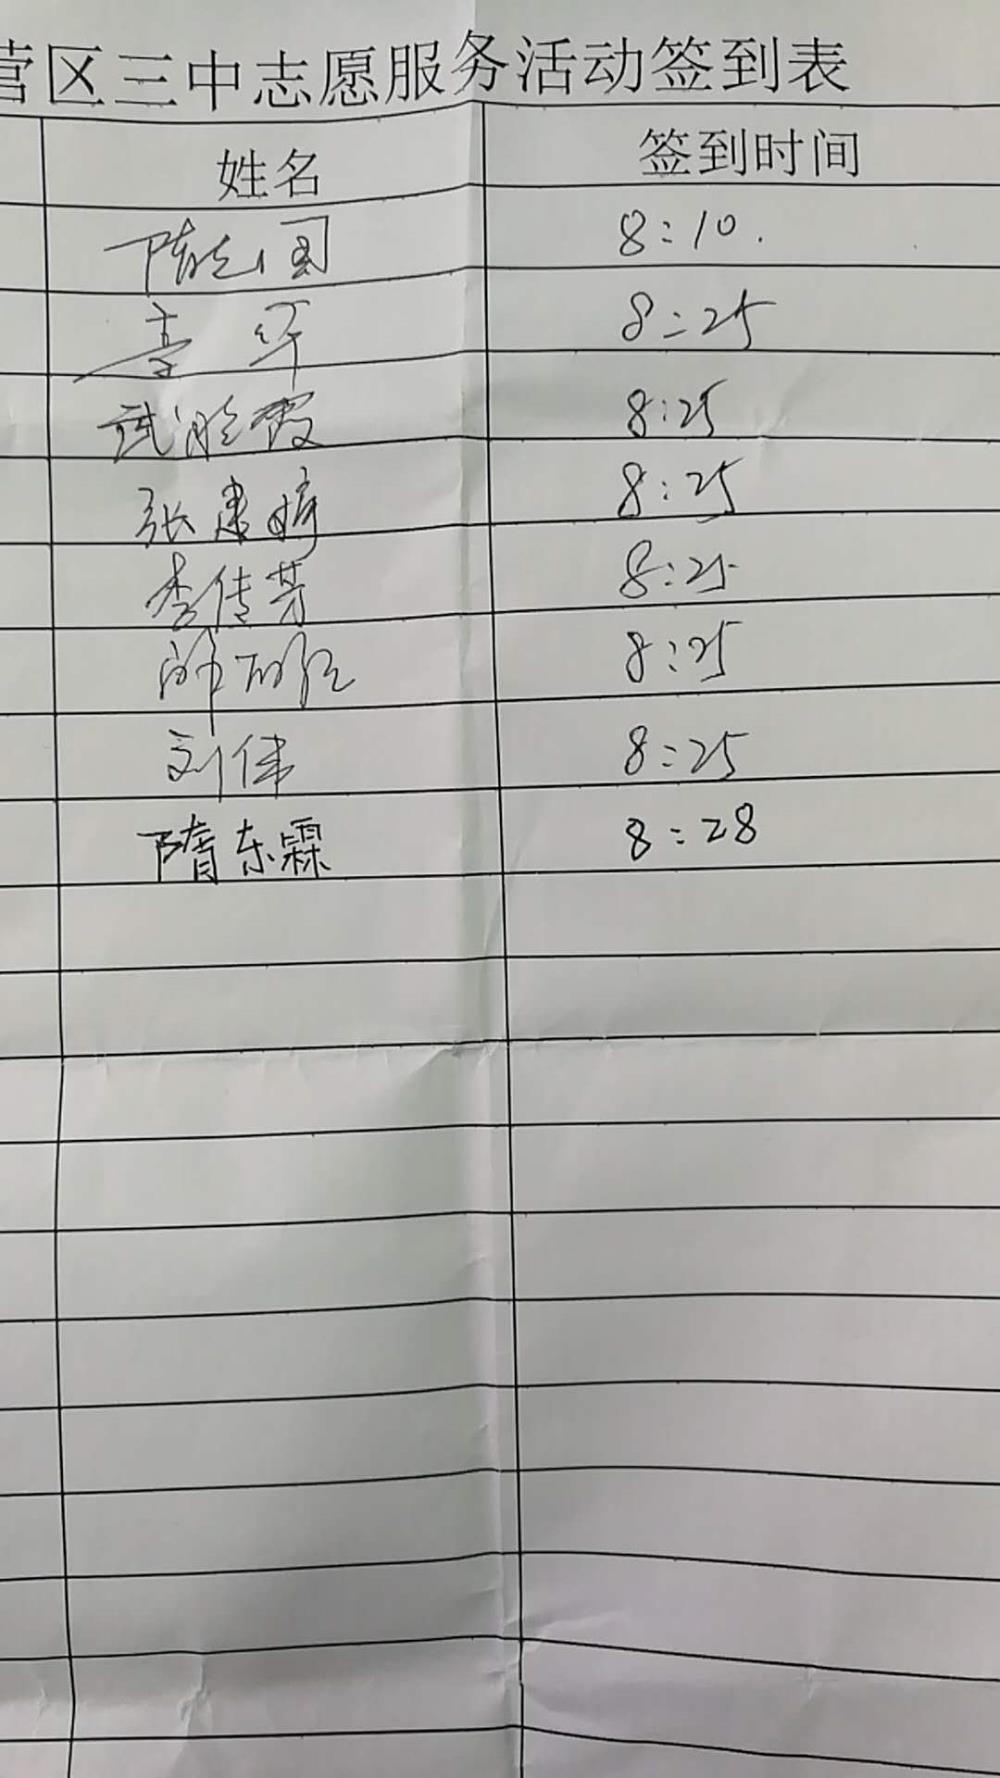 营区三中志愿服务活动签到表
姓名 签到时间
8:10.
8:25
武晓霞 8:25
张建婷 8:25
李传芳 8:25
8:25
刘伟 8:25
隋东霖 8:28